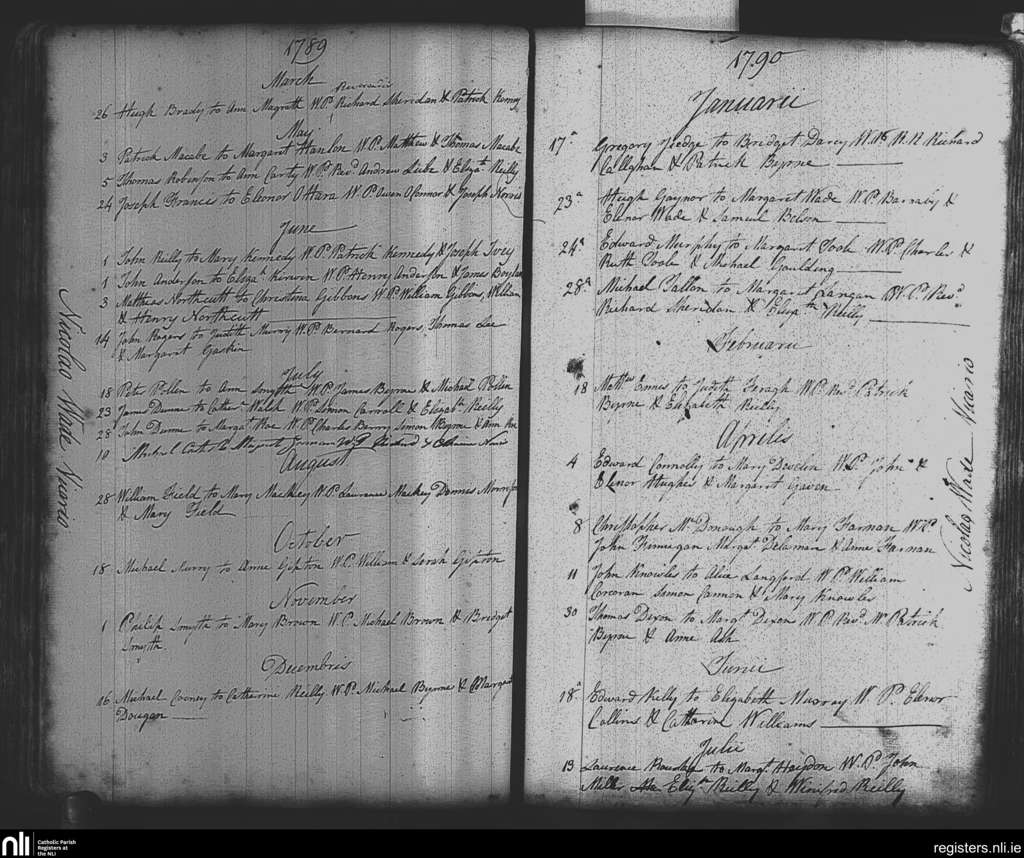 1789
March
Reverend
26 Hugh Brady to Ann Magrath W.Ps Richard Sheridan & Patrick Kenny
May
3 Patrick Macabe to Margaret Hanlon W.P. Matthew & Thomas Macabe
5 Thomas Robinson to Ann Carty W.Ps Revd. Andrew Lube & Elizath Reilly
24 Joseph Francis to Eleonor OHara W.P. Owen OConnor & Joseph Norris
June
1 John Reilly to Mary Kennedy W.P. Patrick Kennedy & Joseph Ivey
1 John Anderson to Elizath Kerwin W.P. Henry Anderson & James Boylan
3 Matthias Northcutt to Christina Gibbons W.P. William Gibbons, William
& Henry Northcutt
14 John Rogers to Judith Murry W.Ps Bernard Rogers, Thomas Lee
& Margaret Gaskin
July
18 Peter Pollen to Ann Smyth W.P. James Byrne & Michael Pollen
23 James Dunne to Cathern Walsh W.P. Simon Carroll & Elizabth Reilly
28 John Dunne to Margat Roe W.P. Charles Barry Simon Byrne & Ann Roe
10 Michael to Margaret W.P.
August
28 William Field to Mary Mackey W.P. Laurence Mackey Dennis
& Mary Field
October
18 Michael Murry to Anne Gipton W.P. William & Sarah Gipton
November
1 Philip Smyth to Mary Brown W.P. Michael Brown & Bridget
Smyth
Decembris
16 Michael Cooney to Catharine Reilly W.P. Michael Byrne & Margaret
Dougan
Nicolao Wade Vicario
1790
Januarii
17a Gregory to Bridget Darcy Richard
Callaghan & Patrick Byrne
23a Hugh Gaynor to Margaret Wade W.P. Barnaby &
Elenor Wade & Samuel Bolson
24a Edward Murphy to Margaret Toole W.P. Charles &
Ruth Toole & Michael Goulding
28a Michael Fallon to Margaret Langan W.P. Revd
Richard Sheridan & Elizath Reilly
Februarii
18 Mattw Ennis to Judith W.P. Revd. Patrick
Byrne & Elizabeth Reilly
Aprilis
4 Edward Connolly to Mary Develin W.P. John &
Elenor Hughes & Margaret Gaven
8 Christopher Mc Donough to Mary Farnan W.P.
John Finnegan Margt. Deleman & Anne Farnan
11 John Knowles to Alice Langford W.P. William
Corcoran Simon Cannon & Mary Knowles
30 Thomas Dixon to Margt. Dixon W.P. Revd. Mr Patrick
Byrne & Anne Ash
Junii
18a Edward Kelly to Elizabeth Murray W.P. Elenor
Collins & Catharine Williams
Julii
13 Laurence to Margt. Haydon W.Pd John
Miller Elizth Reilley & Winifred Reilly
Nicolao Wade Vicario
nli
Catholic Parish
Registers at
the NLI
registers.nli.ie